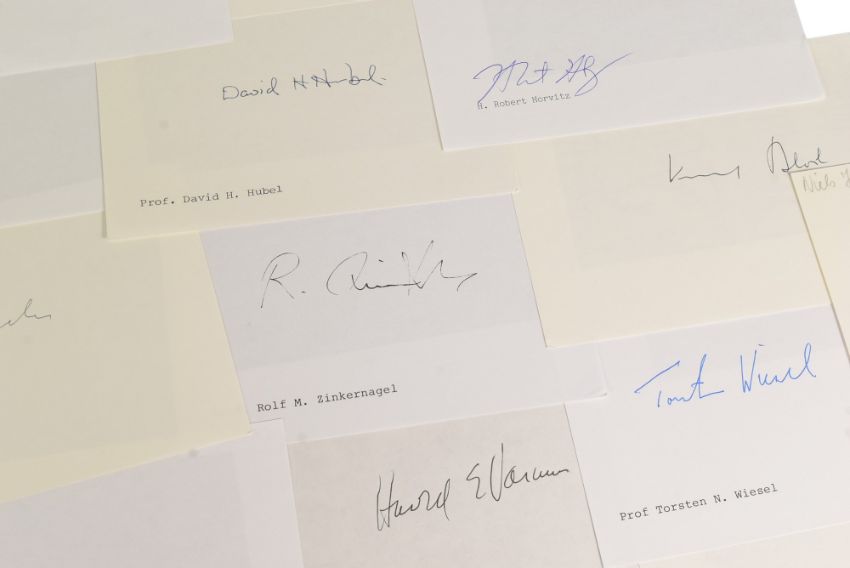 David H Hubel
Prof. David H. Hubel
H. Robert Horvitz
Niels
R. Zinkernagel
Rolf M. Zinkernagel
Torsten Wiesel
Prof Torsten N. Wiesel
Harold E Varmus